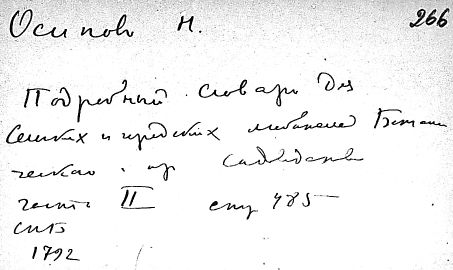 Осипов Н. 266
Подробный словарь для
сельских и городских любителей Ботани
ческаго
часть II стр 485
СПБ
1792